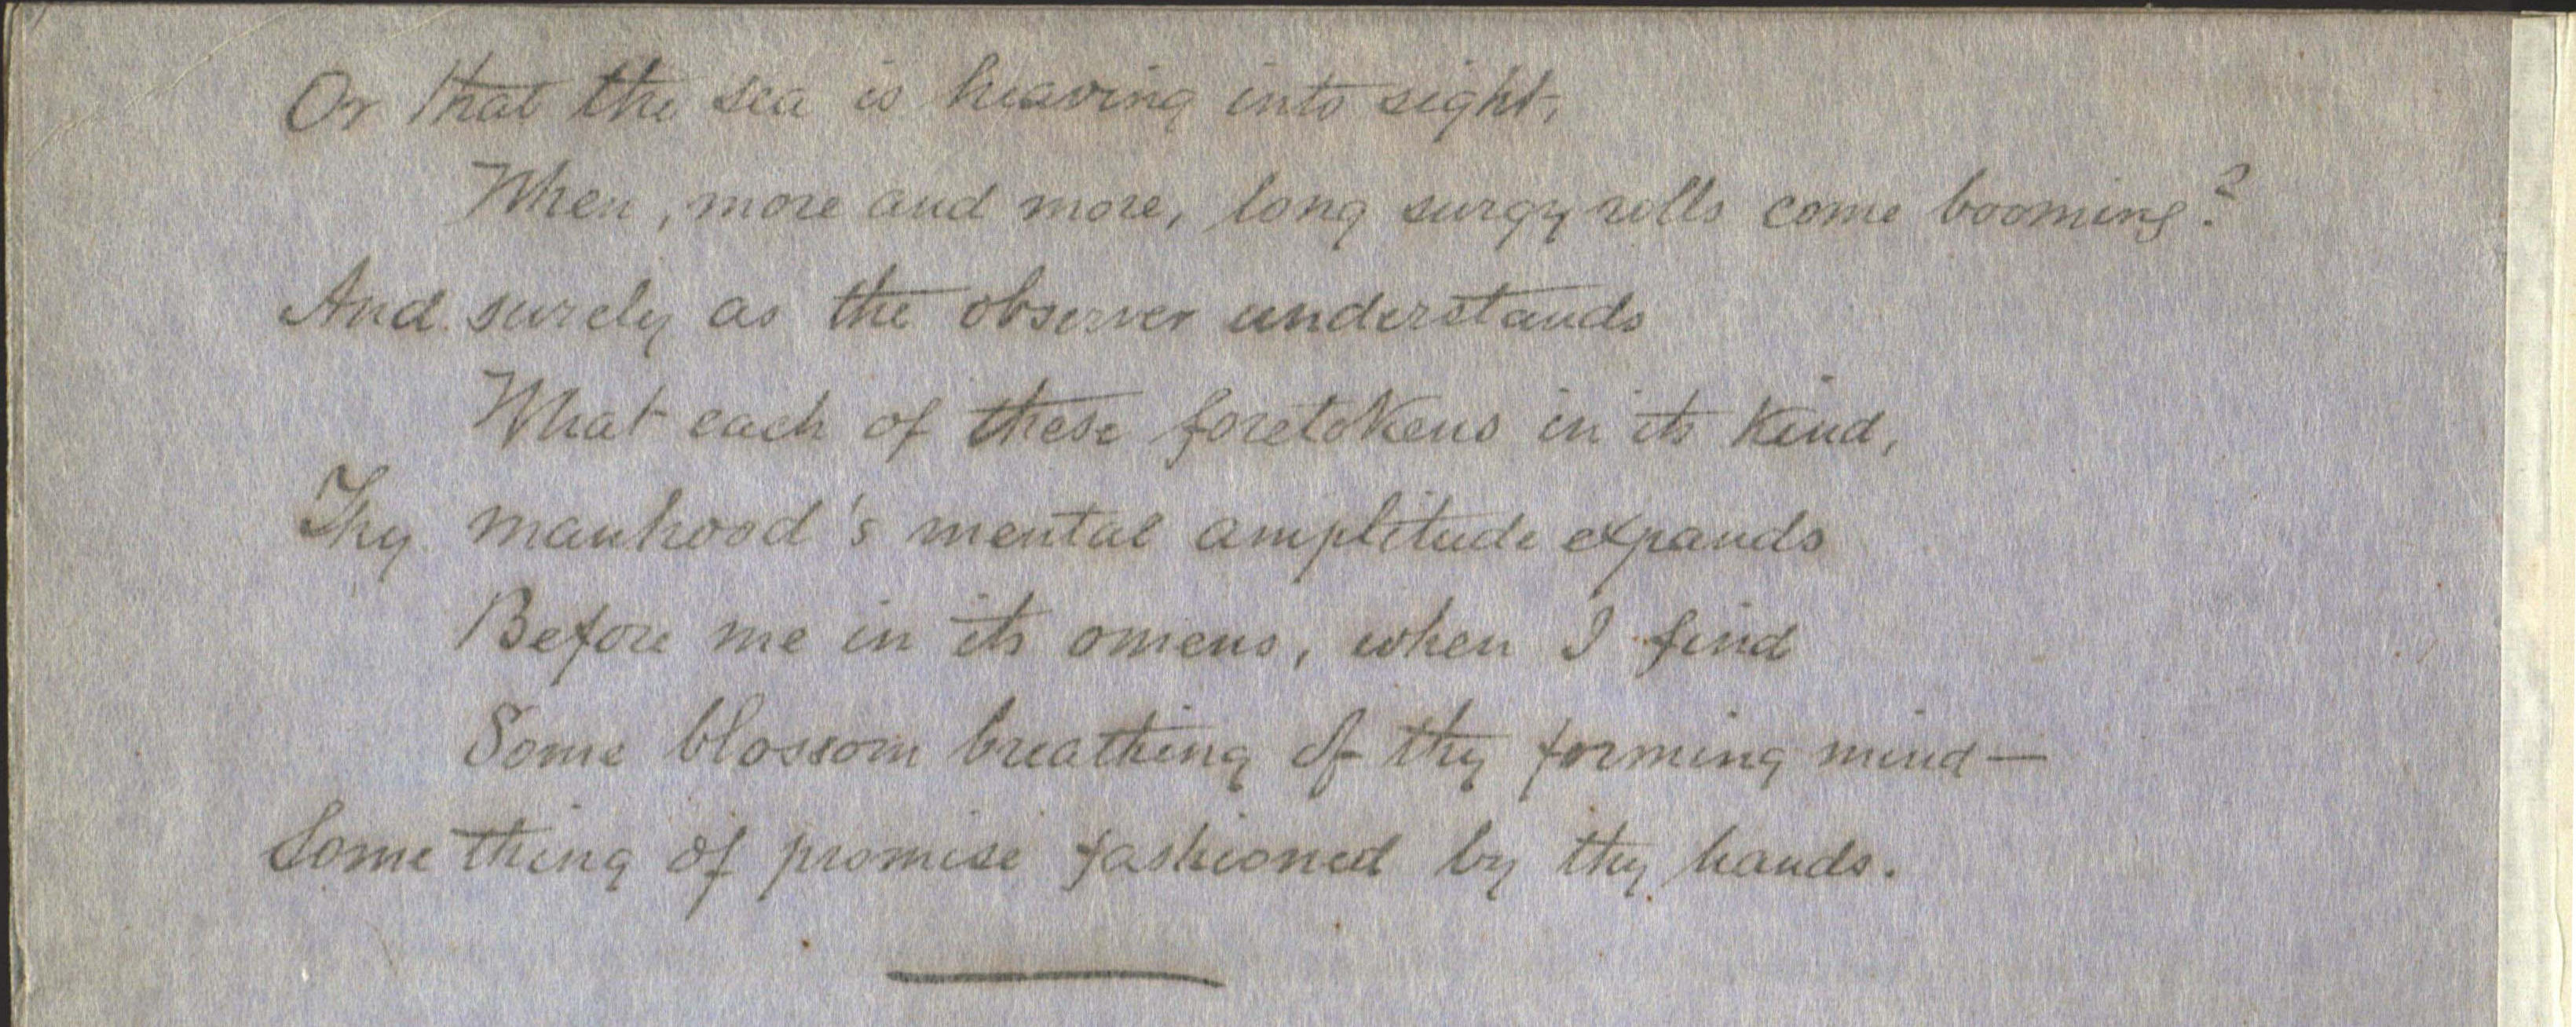 Or that the sea is heaving into sight,
When, more and more, long surgy rolls come booming?
And surely as the observer understands
What each of these foretokens in its kind,
Thy manhood's mental amplitude expands
Before me in its omens, when I find
Some blossom breathing of thy forming mind—
Some thing of promise fashioned by thy hands.